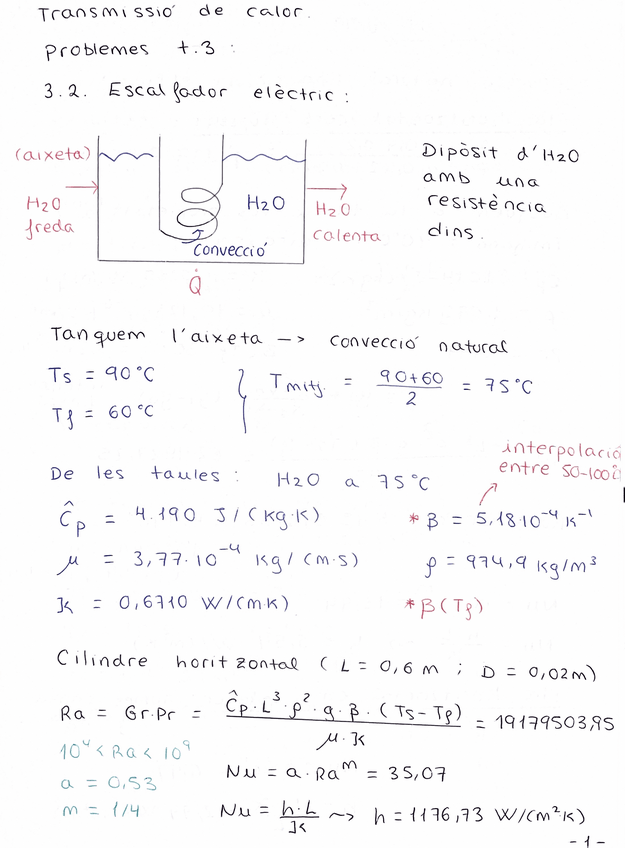 Transmissió de calor.
Problemes t.3 :
3.2. Escalfador elèctric :
(aixeta)
H2O
freda
H2O
Convecció
Q̇
H2O
calenta
Dipòsit d'H2O
amb una
resistència
dins.
Tanquem l'aixeta -> convecció natural
Ts = 90°C
Tf = 60°C
Tmitj. = (90+60)/2 = 75°C
interpolació
entre 50-100
De les taules : H2O a 75°C
Ĉp = 4.190 J/(kg·K)
* β = 5,18·10⁻⁴ K⁻¹
μ = 3,77·10⁻⁴ Kg/(m·s)
ρ = 974,9 kg/m³
K = 0,6710 W/(m·K)
* β(Tf)
Cilindre horitzontal (L = 0,6 m ; D = 0,02m)
Ra = Gr·Pr = (Ĉp·L³·ρ²·g·β·(Ts-Tf))/(μ·K) = 19179503,95
10⁴ < Ra < 10⁹
a = 0,53
m = 1/4
Nu = a·Raᵐ = 35,07
Nu = (h·L)/K ~> h = 1176,73 W/(m²K)
-1-